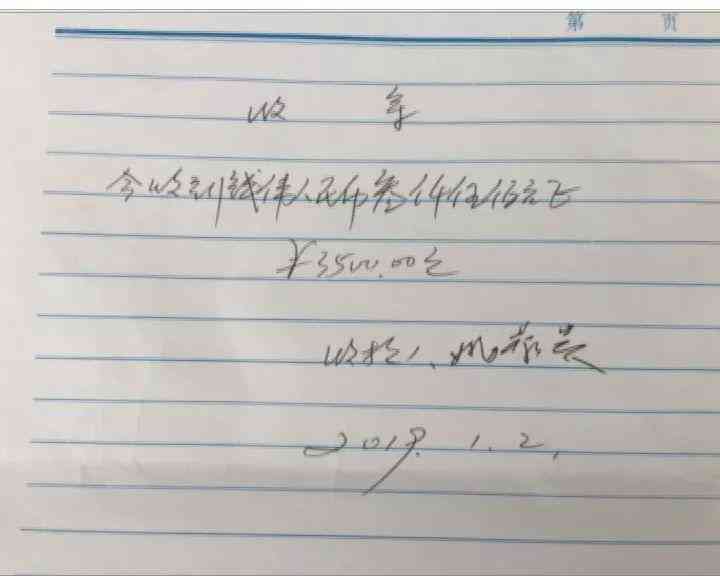 第 页
收 条
今收到钱伟人民币叁仟伍佰元正
¥3500.00元
收款人、
2019.1.2.